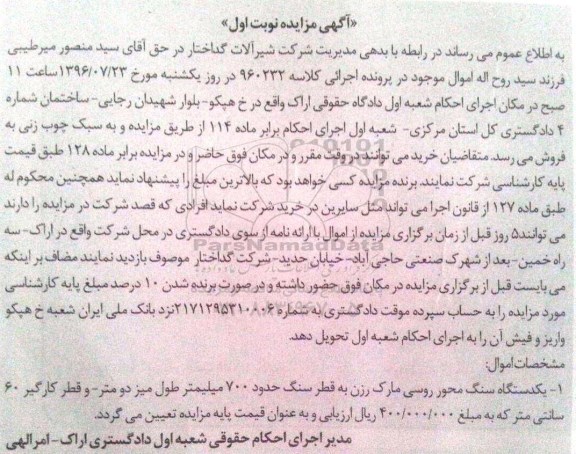 «آگهی مزایده نوبت اول»
به اطلاع عموم می رساند در رابطه با بدهی مدیریت شرکت شیرآلات گداختار در حق آقای سید منصور میرطیبی
فرزند سید روح اله اموال موجود در پرونده اجرائی کلاسه ۹۶۰۲۳۲ در روز یکشنبه مورخ ۱۳۹۶/۰۷/۲۳ساعت ۱۱
صبح در مکان اجرای احکام شعبه اول دادگاه حقوقی اراک واقع در خ هپکو-بلوار شهیدان رجایی-ساختمان شماره
۴ دادگستری کل استان مرکزی- شعبه اول اجرای احکام برابر ماده ۱۱۴ از طریق مزایده و به سبک چوب زنی به
فروش می رسد. متقاضیان خرید می توانند در وقت مقرر و در مکان فوق حاضر و در مزایده برابر ماده ۱۲۸ طبق قیمت
پایه کارشناسی شرکت نمایند. برنده مزایده کسی خواهد بود که بالاترین مبلغ را پیشنهاد نماید همچنین محکوم له
طبق ماده ۱۲۷ از قانون اجرا می تواند مثل سایرین در خرید شرکت نماید افرادی که قصد شرکت در مزایده را دارند
می توانند۵ روز قبل از زمان برگزاری مزایده از اموال با ارائه نامه از سوی دادگستری در محل شرکت واقع در اراک-سه
راه خمین-بعد از شهرک صنعتی حاجی آباد-خیابان حدید-شرکت گداختار موصوف بازدید نمایند مضاف بر اینکه
می بایست قبل از برگزاری مزایده در مکان فوق حضور داشته و در صورت برنده شدن ۱۰ درصد مبلغ پایه کارشناسی
مورد مزایده را به حساب سپرده موقت دادگستری به شماره ۲۱۷۱۲۹۵۳۱۰۰۰۶نزد بانک ملی ایران شعبه خ هپکو
واریز و فیش آن را به اجرای احکام شعبه اول تحویل دهد.
مشخصات اموال:
۱- یکدستگاه سنگ محور روسی مارک رزن به قطر سنگ حدود ۷۰۰ میلیمتر طول میز دو متر- و قطر کارگیر ۶۰
سانتی متر که به مبلغ ۴۰۰/۰۰۰/۰۰۰ ریال ارزیابی و به عنوان قیمت پایه مزایده تعیین می گردد.
مدیر اجرای احکام حقوقی شعبه اول دادگستری اراک-امرالهی
ParsNamadData